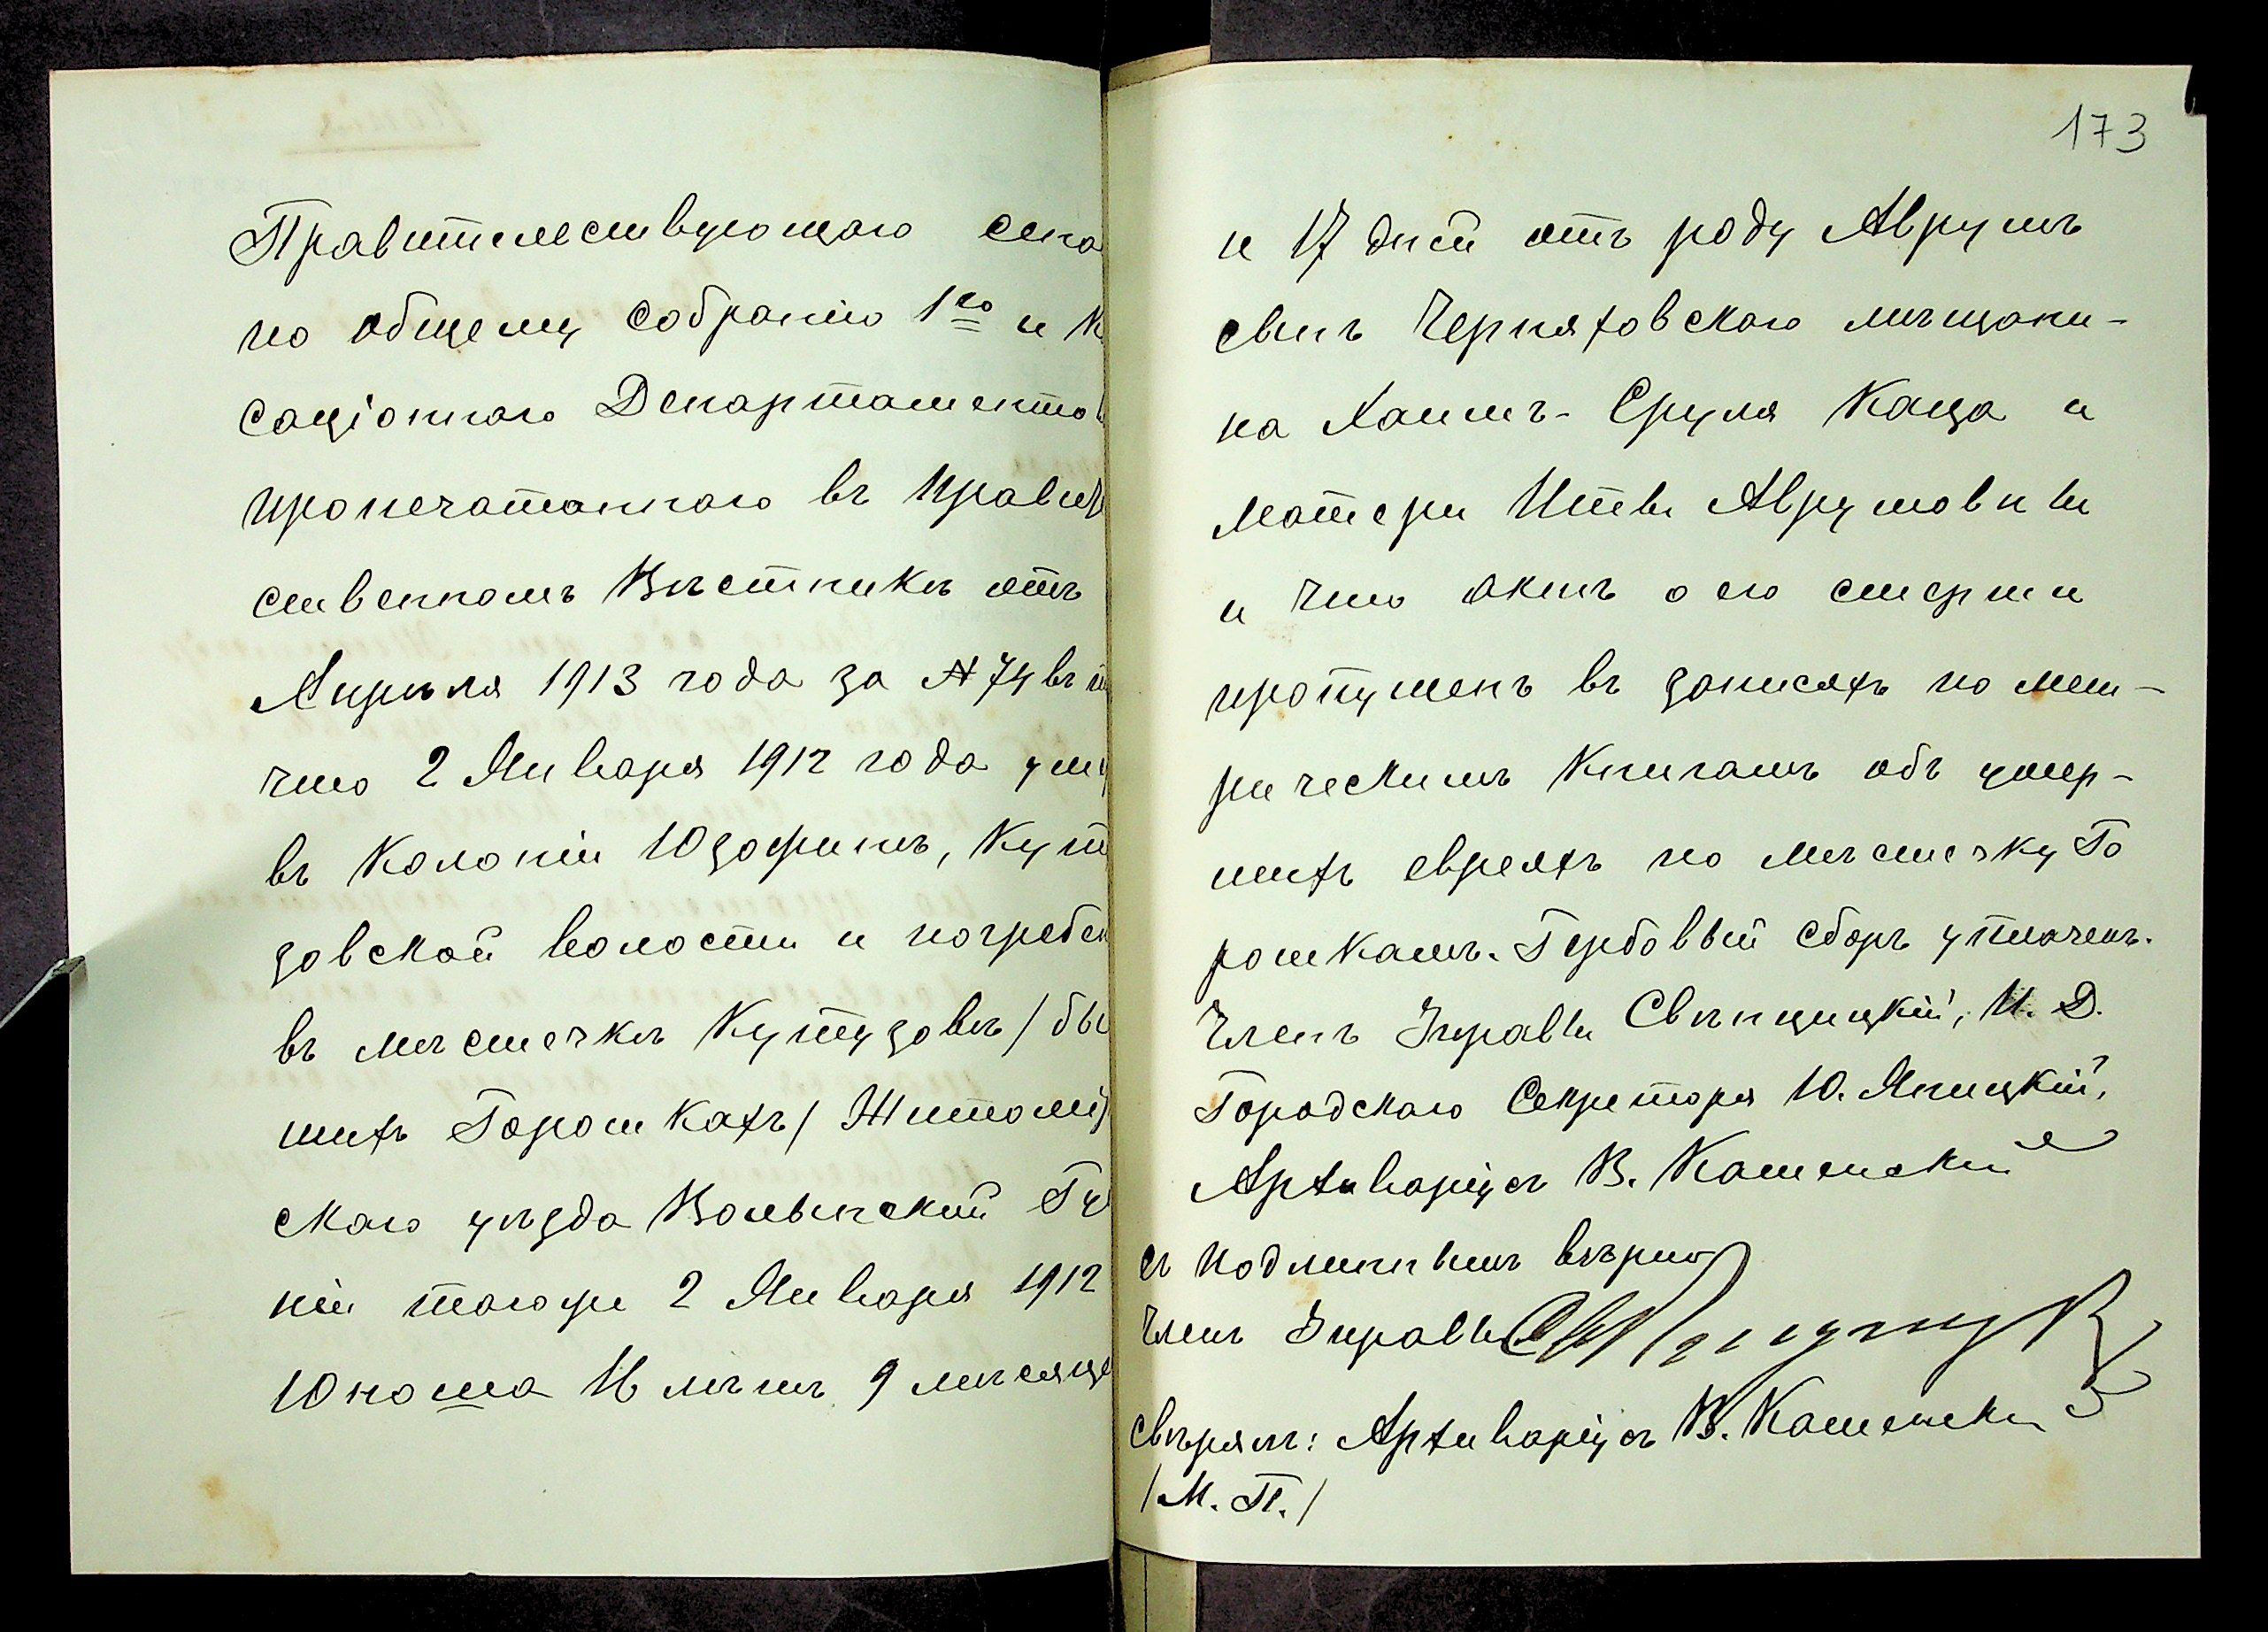 Правительствующаго сена
по общему собранію 1го и К
саціоннаго Департаментов
пропечатаннаго въ Правит
ственномъ Вѣстникѣ отъ
Апрѣля 1913 года за № 74 въ т
что 2 Января 1912 года уме
въ колоніи Юзофинъ, Кут
зовской волости и погребен
въ мѣстечкѣ Кутузовѣ /бы
шихъ Горошкахъ/ Житомір
скаго уѣзда Волынской Гу
ніи тогоже 2 Января 1912
Юноша 16 лѣтъ 9 мѣсяце
173
и 17 дней отъ роду Аврумъ
сынъ Черняховскаго мѣщани-
на Хаимъ-Сруля Каца и
матери Итвы Аврумовны
и что актъ о его смерти
пропущенъ въ записяхъ по мет-
рическимъ книгамъ объ умер-
шихъ евреяхъ по мѣстечку Го
рошкамъ. Гербовый сборъ уплаченъ.
Членъ Управы Свѣнцицкій, И. Д.
Городскаго Секретаря Ю. Яницкій,
Архиваріусъ В. Каменскій
съ подлиннымъ вѣрно
Членъ Управы
свѣрялъ: Архиваріусъ В. Каменскій
/М. П./